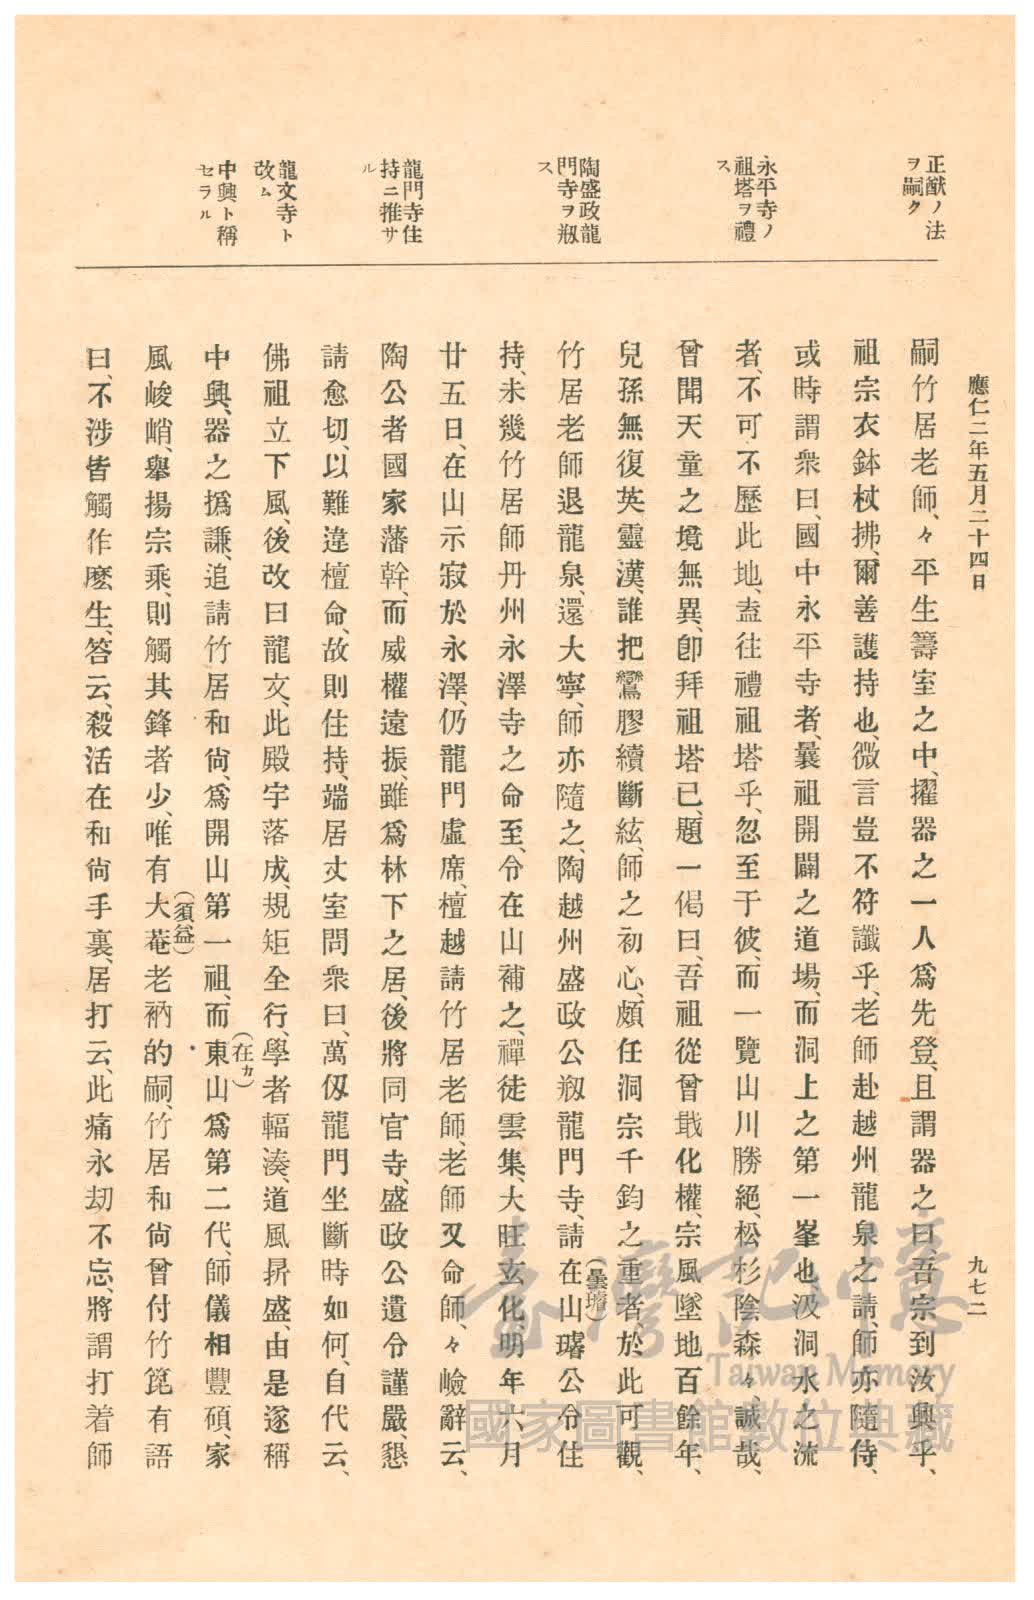 應仁二年五月二十四日
九七二
正猷ノ法
ヲ嗣ク
永平寺ノ
祖塔ヲ禮
ス
陶盛政龍
門寺ヲ剏
ス
龍門寺住
持ニ推サ
ル
龍文寺ト
改ム
中興ト稱
セラル
嗣竹居老師、々平生籌室之中、擢器之一人爲先登、且謂器之曰、吾宗到汝興乎、
祖宗衣鉢杖拂、爾善護持也、微言豈不符讖乎、老師赴越州龍泉之請、師亦隨侍、
或時謂衆曰、國中永平寺者、曩祖開闢之道場、而洞上之第一峯也、汲洞水之流
者、不可不歷此地、盍往禮祖塔乎、忽至于彼、而一覽山川勝絕、松杉陰森々、誠哉、
曾聞天童之境無異、卽拜祖塔已、題一偈曰、吾祖從曾戢化權、宗風墜地百餘年、
兒孫無復英靈漢、誰把鸞膠續斷絃、師之初心、頗任洞宗千鈞之重者、於此可觀、
竹居老師退龍泉、還大寧、師亦隨之、陶越州盛政公剏龍門寺、請在山璿公令住
(曇璿)
持、未幾竹居師丹州永澤寺之命至、令在山補之、禪徒雲集、大旺玄化、明年六月
廿五日、在山示寂於永澤、仍龍門虛席、檀越請竹居老師、老師又命師、々嶮辭云、
陶公者國家藩幹、而威權遠振、雖爲林下之居、後將同官寺、盛政公遺令謹嚴、懇
請愈切、以難違檀命、故則住持、端居丈室問衆曰、萬仭龍門坐斷時如何、自代云、
佛祖立下風、後改曰龍文、此殿宇落成、規矩全行、學者輻湊、道風昇盛、由是遂稱
中興、器之撝謙、追請竹居和尙、爲開山第一祖、而東山爲第二代、師儀相豐碩、家
(在カ)
風峻峭、舉揚宗乘、則觸其鋒者少、唯有大菴老衲的嗣、竹居和尙曾付竹篦有語
(須益)
曰、不涉皆觸作麽生、答云、殺活在和尙手裏、居打云、此痛永刧不忘、將謂打着師
臺灣記憶
Taiwan Memory
國家圖書館數位典藏